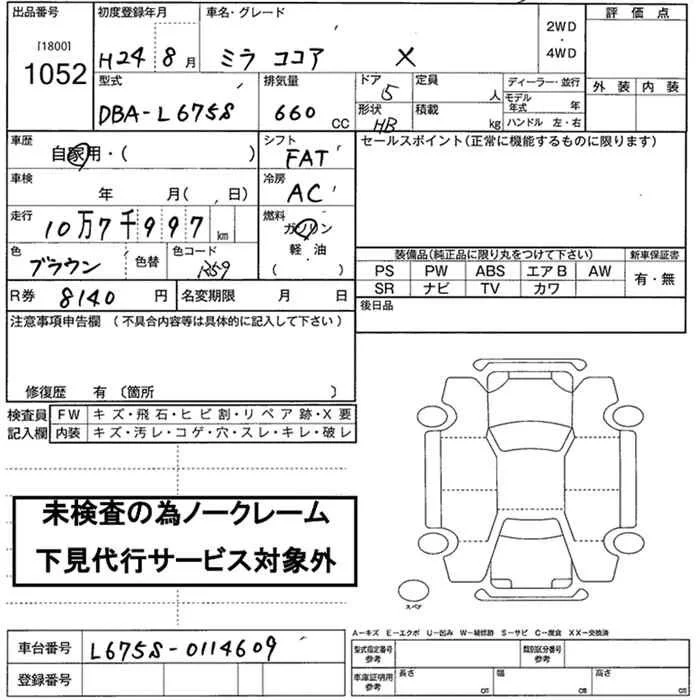 出品番号
[1800]
1052
初度登録年月
H24 8月
車名・グレード
ミラ ココア X
2WD
・
4WD
評価点
外装 内装
型式
DBA-L675S
排気量
660 CC
ドア
5
形状
HB
定員
人
積載
kg
ディーラー・並行
モデル年式 年
ハンドル 左・右
車歴
自家用・( )
シフト
FAT
セールスポイント(正常に機能するものに限ります)
車検
年 月( 、日)
冷房
AC
走行
10万7千997 km
燃料
ガソリン
軽・油
( ・ )
色
ブラウン
色替
色コード
R59
装備品(純正品に限り丸をつけて下さい)
新車保証書
PS PW ABS エアB AW
有・無
SR ナビ TV カワ
R券 8140 円
名変期限 月 日
後日品
注意事項申告欄(不具合内容等は具体的に記入して下さい)
修復歴 有〔箇所 〕
検査員
記入欄
FW キズ・飛石・ヒビ割・リペア跡・X要
内装 キズ・汚レ・コゲ・穴・スレ・キレ・破レ
未検査の為ノークレーム
下見代行サービス対象外
スペア
A-キズ E-エクボ U-凹み W-補修跡 S-サビ C-腐食 XX-交換済
車台番号 L675S-0114609
登録番号
型式指定番号
参考
類別区分番号
参考
車庫証明用
参考
長さ cm
幅 cm
高さ cm